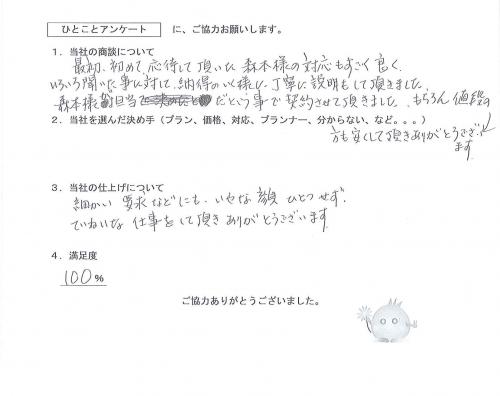 ひとことアンケート に、ご協力お願いします。
1．当社の商談について
最初、初めて、応待して頂いた 森本様の対応もすごく良く、
いろいろ聞いた事に対して、納得のいく様に、丁寧に説明もして頂きました。
森本様が担当 だという事で契約させて頂きました。もちろん 値段の
2．当社を選んだ決め手（プラン、価格、対応、プランナー、分からない、など。。。）
方も安くして頂きありがとうござい
ます
3．当社の仕上げについて
細かい 要求などにも、いやな 顔 ひとつ せず、
ていねいな 仕事をして頂き ありがとうございます
4．満足度
100%
ご協力ありがとうございました。